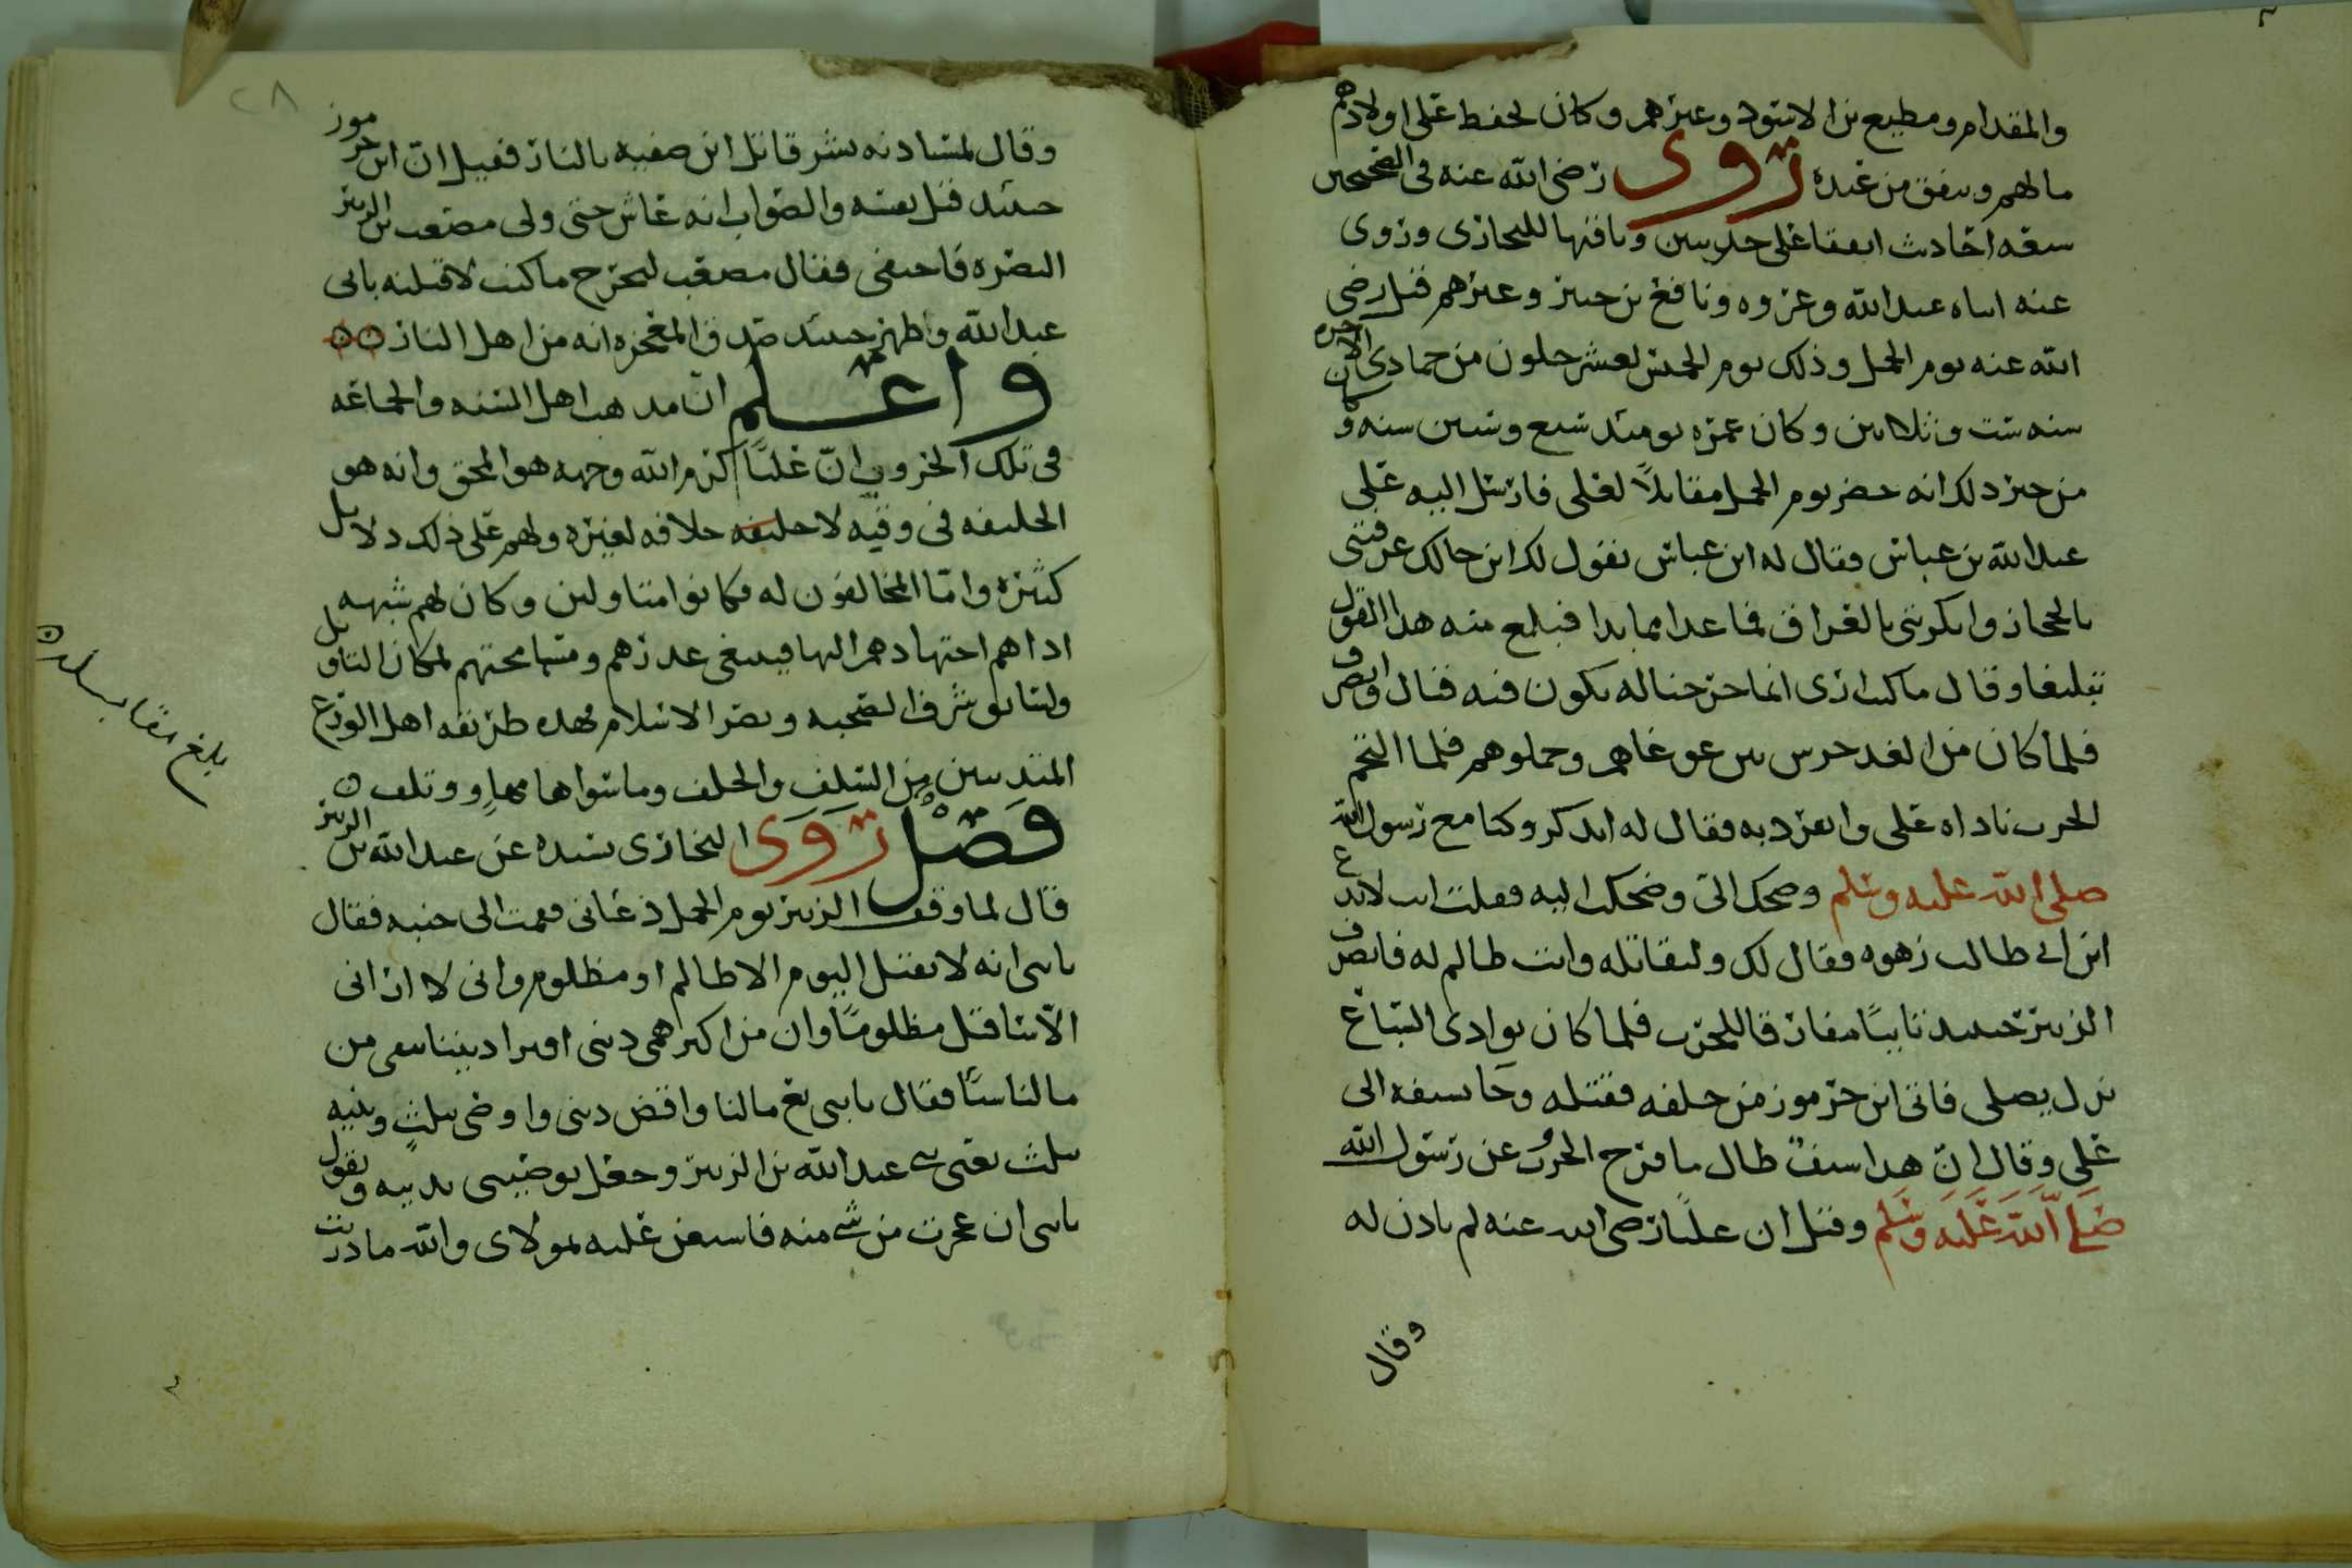 والمقدام ومطيع بن الاسود وغيرهم وكان يحفظ على اولادهم
مالهم وينفق من عنده روى رضي الله عنه في الصحيحين
سعه احاديث اتفقا على حديثين وباقيها للبخاري وروى
عنه ابناه عبد الله وعروه ونافع بن جبير وغيرهم قتل رضي
الله عنه يوم الجمل وذلك يوم الخميس لعشر خلون من جمادى الاخرى
سنه ست وثلاثين وكان عمره يومئذ سبع وستين سنه و
من خبر ذلك انه حضر يوم الجمل مقاتلاً لعلي فارسل اليه علي
عبد الله بن عباس فقال له ابن عباس يقول لك ابن خالك عرفتني
بالحجاز وانكرتني بالعراق فما عدا مما بدا فبلغ منه هذا القول
تبليغا وقال ما كنت ارى انما خرجنا له يكون فيه قتال وانصرف
فلما كان من الغد حرس بين غوغاهم وحملوهم فلما التحم
الحرب ناداه علي وانفرد به فقال له اتذكر وكنا مع رسول الله
صلى الله عليه وسلم وضحك اليّ وضحكت اليه فقلت انت لا يدع
ابن ابي طالب زهوه فقال لك ولتقاتله وانت ظالم له فانصرف
الزبير حينئذ تايبًا مفارقا للحرب فلما كان بوادي السباع
نزل يصلي فاتى ابن جرموز من خلفه فقتله وجا بسيفه الى
علي وقال ان هذا سيف طال ما فرج الحرب عن رسول الله
صلى الله عليه وسلم وقيل ان عليًا رضي الله عنه لم ياذن له
وقال
٢٨
وقال لمستاذنه بشر قاتل ابن صفيه بالنار فقيل ان ابن جرموز
حينئذ قتل نفسه والصواب انه عاش حتى ولي مصعب بن الزبير
البصره فاختفى فقال مصعب ليخرج ما كنت لاقتله بابي
عبد الله واظهر حينئذ صدق المعجزه انه من اهل النار ٥٥
واعلم ان مذهب اهل السنه والجماعه
في تلك الحروب انّ عليًا كرم الله وجهه هو المحق وانه هو
الخليفه في وقته لا خليفه خلافه لغيره ولهم على ذلك دلايل
كثيره وامّا المخالفون له فكانوا متاولين وكان لهم شبهه
اداهم اجتهادهم اليها فينبغي عذرهم ومسامحتهم لمكان التاويل
ولسابق شرف الصحبه ونصر الاسلام فهذه طريقه اهل الورع
المتدينين من السلف والخلف وما سواها مهاوٍ وتلف ٥
فصل روى البخاري بسنده عن عبد الله بن الزبير
قال لما وقف الزبير يوم الجمل دعاني فقمت الى جنبه فقال
يابني انه لا يقتل اليوم الا ظالم او مظلوم واني لا اراني
الّا سا قتل مظلومًا وان من اكبر همي ديني افترا ديننا يبقي من
مالنا شيئًا فقال يابني بع مالنا واقض ديني واوصى بثلثٍ وثلثه
لبنيه يعني بني عبد الله بن الزبير وجعل يوصيني بدينه ويقول
يابني ان عجزت من شي منه فاستعن عليه بمولاي والله ما دريت
بلغ مقابله ٥